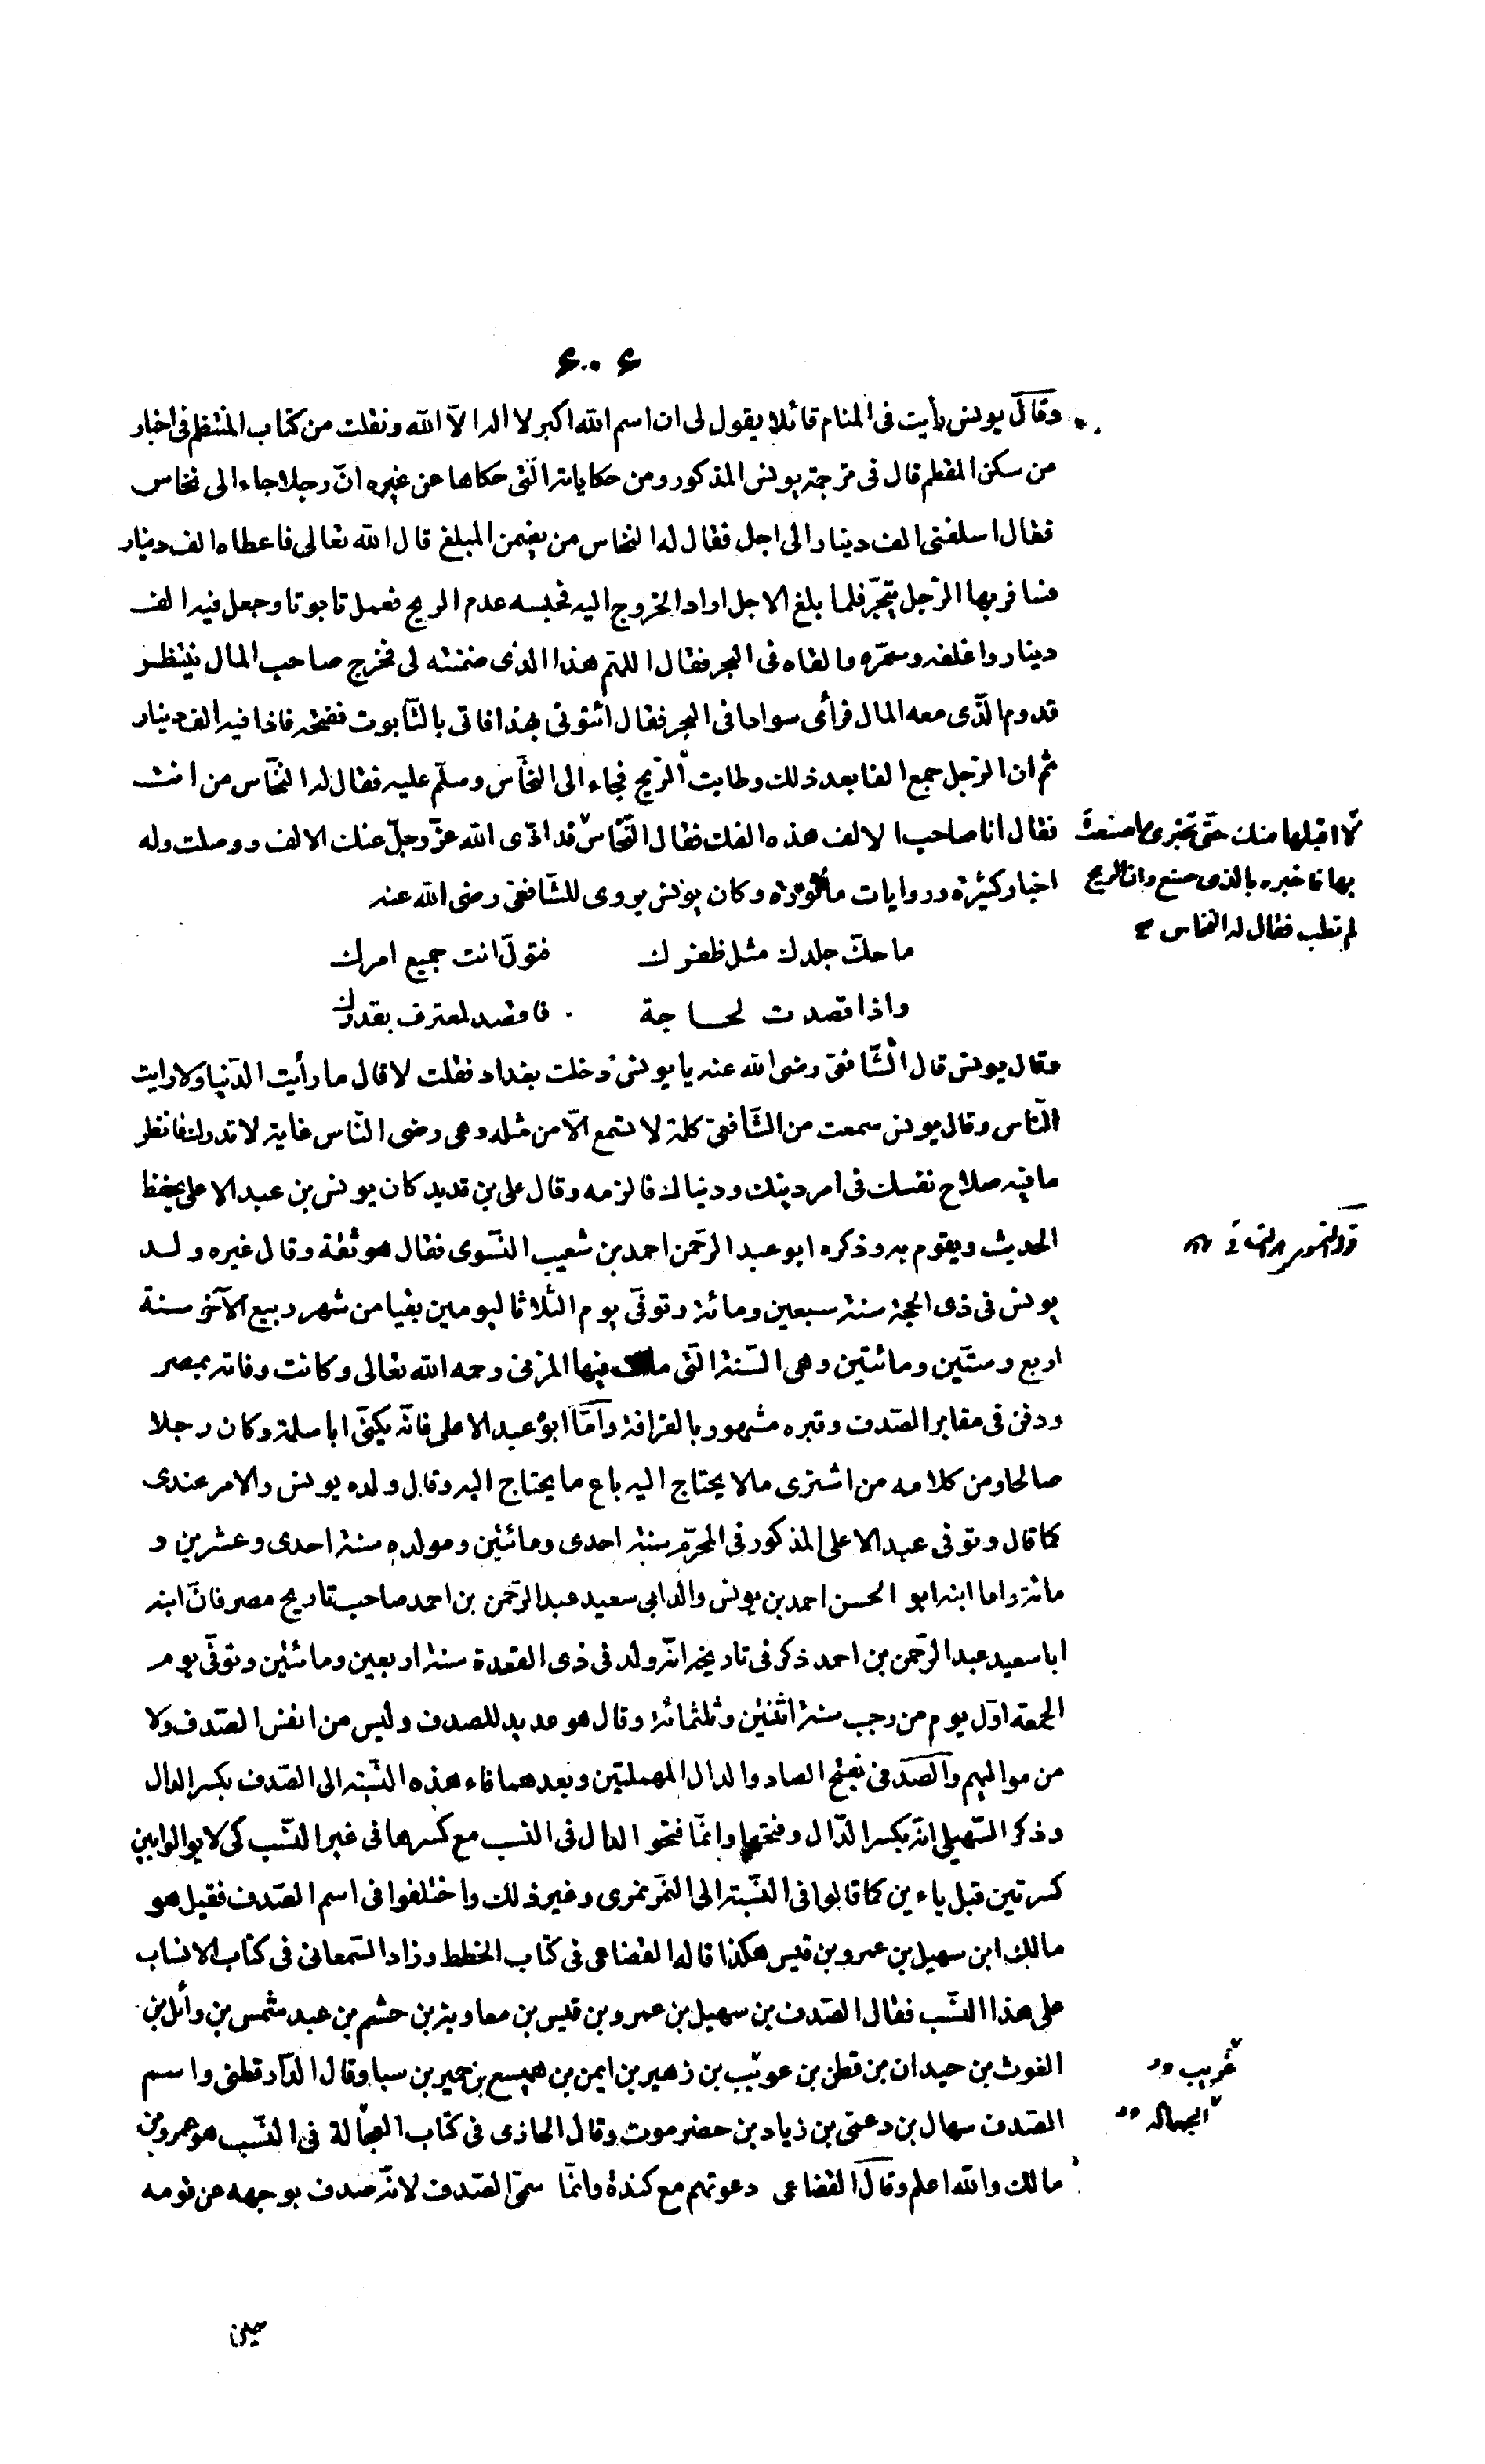 ۶۰۶
وقال يونس رأيت فى المنام قائلا يقول لى ان اسم الله اكبر لا اله الّا الله ونقلت من كتاب المنتظم فى اخبار
من سكن المقطم قال فى ترجمة يونس المذكور ومن حكاياته الّتى حكاها عن غيره انّ رجلا جاء الى نخاس
فقال اسلفنى الف دينار الى اجل فقال له النخاس من يضمن المبلغ قال الله تعالى فاعطاه الف دينار
فسافر بها الرّجل يتّجر فلما بلغ الاجل اراد الخروج اليه فحبسه عدم الريح فعمل تابوتا وجعل فيه الف
دينار واغلقه وسمّره والقاه فى البحر فقال اللهم هذا الذى ضمنته لى فخرج صاحب المال ينتظر
قدوم الّذى معه المال فرأى سوادا فى البحر فقال ائتونى بهذا فاتى بالتّابوت ففتحه فاذا فيه الف دينار
ثم ان الرّجل جمع الفا بعد ذلك وطابت الرّيح فجاء الى النخّاس وسلّم عليه فقال له النخّاس من انت
فقال انا صاحب الالف هذه الفك فقال النّخاس قد ادّى الله عزّ وجلّ عنك الالف ووصلت وله
لا اقبلها منك حتّى تخبرى ما صنعت
بها فاخبره بالذى صنع وان الريح
لم تطب فقال له النخاس
اخبار كثيرة وروايات مأثورة وكان يونس يروى للشّافعى رضى الله عنه
ما حكّ جلدك مثل ظفرك فتولّ انت جميع امرك
واذا قصدت لحاجة فاقصد لمعترف بقدرك
وقال يونس قال الشّافعى رضى الله عنه يا يونس دخلت بغداد فقلت لا قال ما رأيت الدّنيا ولا رايت
النّاس وقال يونس سمعت من الشّافعىّ كلمة لا تسمع الّا من مثله وهى رضى النّاس غاية لا تدرك فانظر
ما فيه صلاح نفسك فى امر دينك ودنياك فالزمه وقال على بن قديد كان يونس بن عبد الاعلى يحفظ
الحديث ويقوم به وذكره ابو عبد الرحّمن احمد بن شعيب النسّوى فقال هو ثقة وقال غيره ولد
يونس فى ذى الحجة سنة سبعين ومائة وتوفّى يوم الثلاثا ليومين بقيا من شهر ربيع الآخر سنة
اربع وستّين ومائتين وهى السّنة الّتى مات فيها المزنى رحمه الله تعالى وكانت وفاته بمصر
ودفن فى مقابر الصّدف وقبره مشهور بالقرافة وامّا ابوه عبد الاعلى فانّه يكنّى ابا سلمة وكان رجلا
صالحا ومن كلامه من اشترى مالا يحتاج اليه باع ما يحتاج اليه وقال ولده يونس والامر عندى
كما قال وتوفى عبد الاعلى المذكور فى المحرّم سنة احدى ومائتين ومولده سنة احدى وعشرين و
مائة واما ابنه ابو الحسن احمد بن يونس والد ابى سعيد عبد الرحّمن بن احمد صاحب تاريخ مصر فانّ ابنه
ابا سعيد عبد الرحّمن بن احمد ذكر فى تاريخه انّه ولد فى ذى القعدة سنة اربعين ومائتين وتوفّى يوم
الجمعة اوّل يوم من رجب سنة اثنتين وثلثمائة وقال هو عديد للصدف وليس من انفس الصّدف ولا
من مواليهم والصّدفى بفتح الصاد والدال المهملتين وبعدهما فاء هذه النسّبة الى الصّدف بكسر الدال
وذكر السّهيلى انّه بكسر الدّال وفتحها وانّما فتحو الدال فى النسب مع كسرها فى غير النسّب كى لا يوالوا بين
كسرتين قبل ياءين كما قالوا فى النسّبة الى النمر نمرى وغير ذلك واختلفوا فى اسم الصّدف فقيل هو
مالك ابن سهيل بن عمرو بن قيس هكذا قاله القضاعى فى كتاب الخطط وزاد السّمعانى فى كتاب الانساب
على هذا النسّب فقال الصّدف بن سهيل بن عمرو بن قيس بن معاوية بن حشم بن عبد شمس بن وائل بن
الغوث بن حيدان بن قطن بن عويب بن زهير بن ايمن بن هميسع بن حمير بن سبا وقال الدّارقطنى واسم
غريب
الصّدف سهال بن دعمى بن زياد بن حضرموت وقال الحازى فى كتاب العجالة فى النسّب هو عمرو بن
الجهاله
مالك والله اعلم وقال القضاعى دعوتهم مع كندة وانّما سمّى الصّدف لانّه صدف بوجهه عن قومه
حين